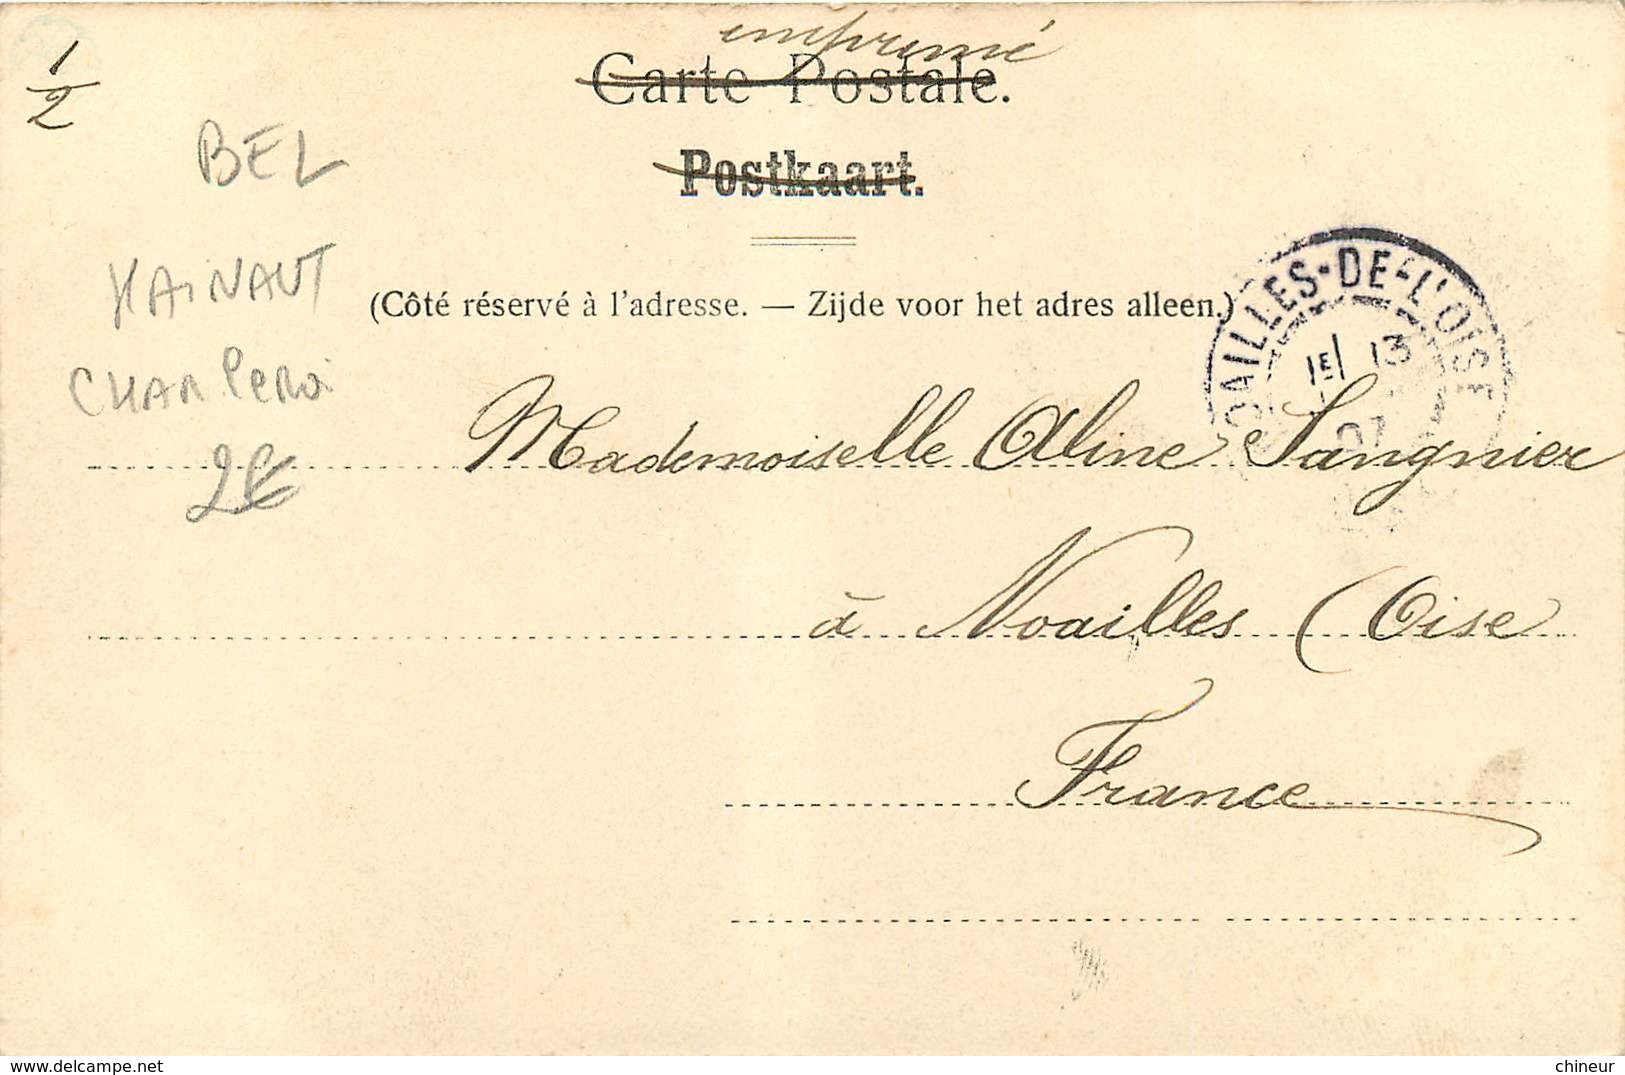 imprimé
1/2
Carte Postale.
Postkaart.
BEL
HAINAUT
CHARLEROI
2€
(Côté réservé à l'adresse. — Zijde voor het adres alleen.)
NOAILLES-DE-L'OISE
1E/ 13
07
Mademoiselle Aline Sangnier
à Noailles (Oise
France
www.delcampe.net
chineur